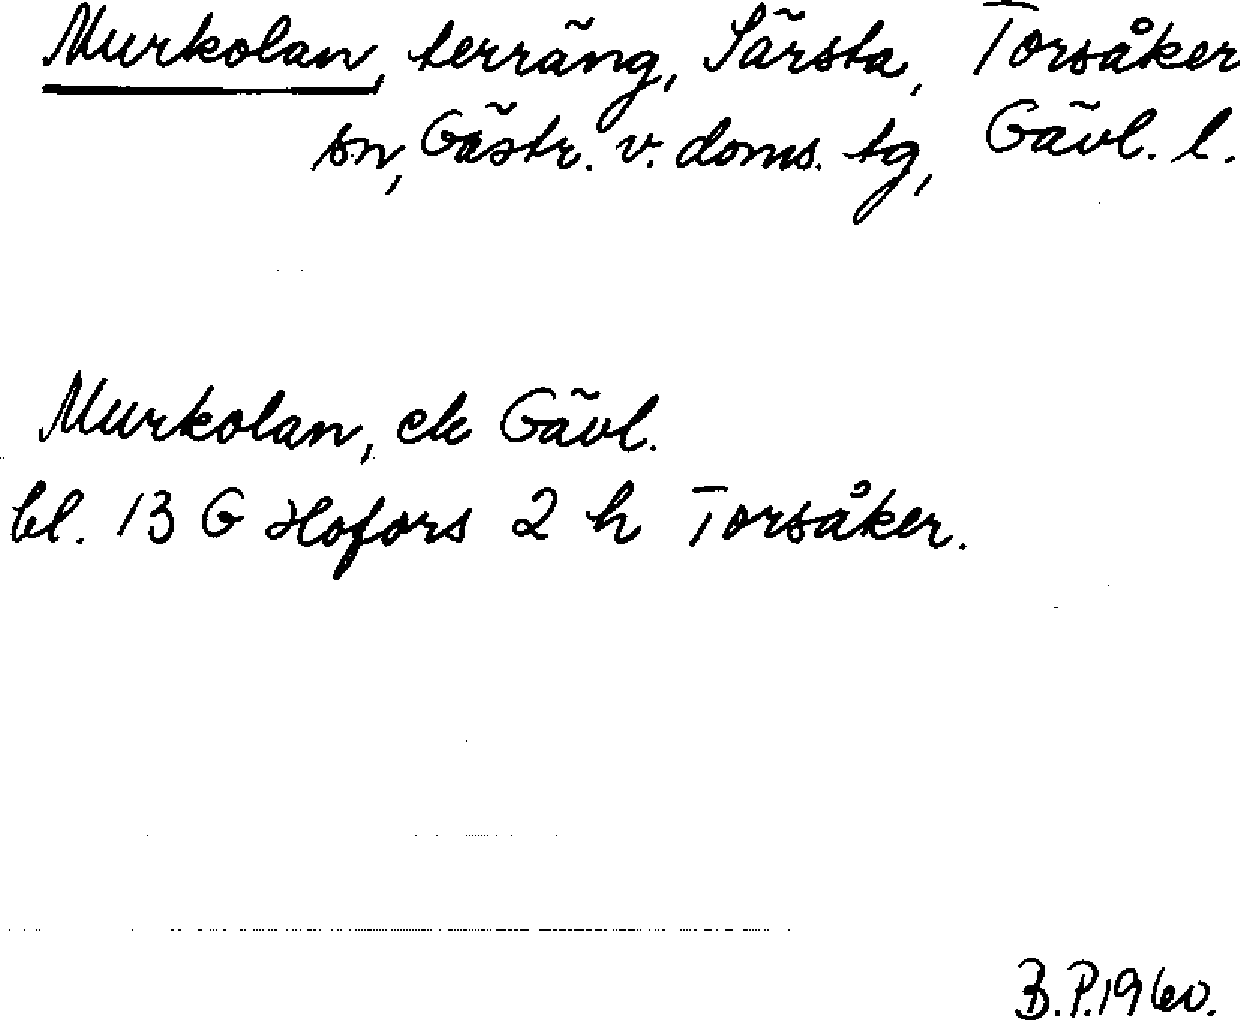 Murkolan, terräng, Särsta, Torsåker
sn, Gästr. v. doms. tg, Gävl. l.
Murkolan, ek Gävl.
bl. 13 G Hofors 2 h Torsåker.
B.P.1960.